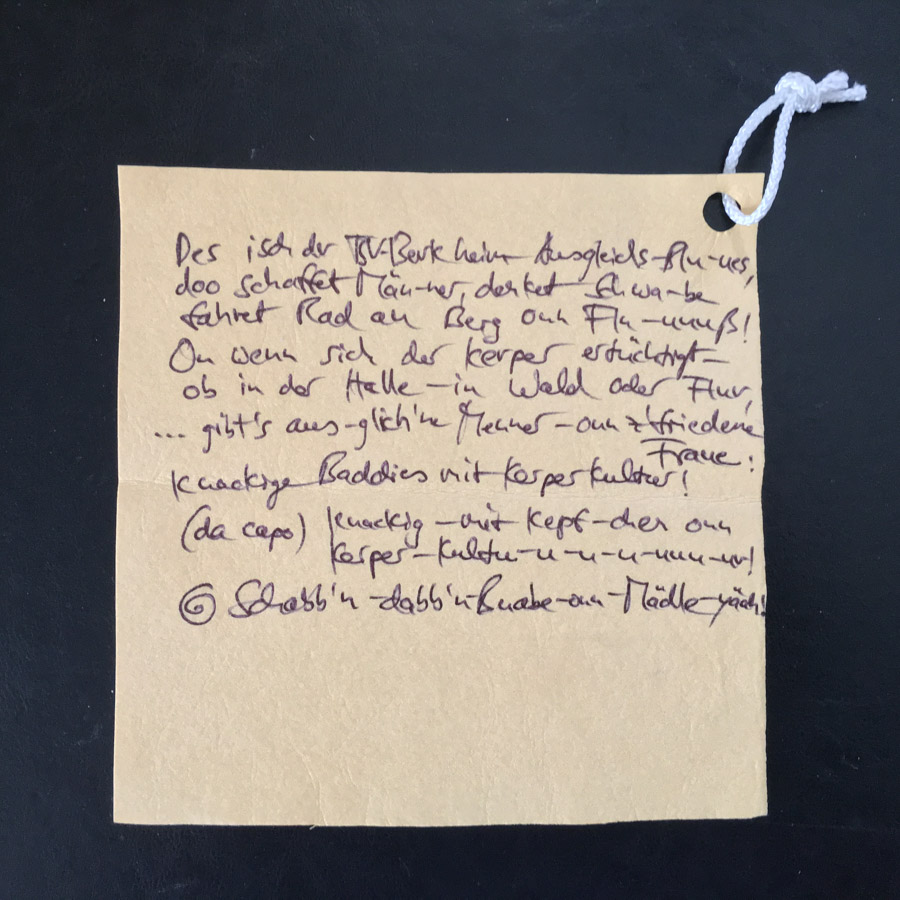 Des isch dr TSV-Berkheim Ausgleichs-Blu-ues,
doo schaffet Män-ner, denket Schwa-be
fahret Rad au Berg onn Flu-uuuß!
On wenn sich der Kerper ertüchtigt-
ob in der Halle - in Wald oder Flur,
... gibt's aus-glich'ne Menner - onn z'friedene
Fraue:
Knackige Baddies mit Körperkultur!
(da capo) Knackig - mit Kepf-cher onn
Körper-Kultu-u-u-u-uuu-ur!
Schabb'n-dabb'n-Buabe-onn-Mädle-yääh!